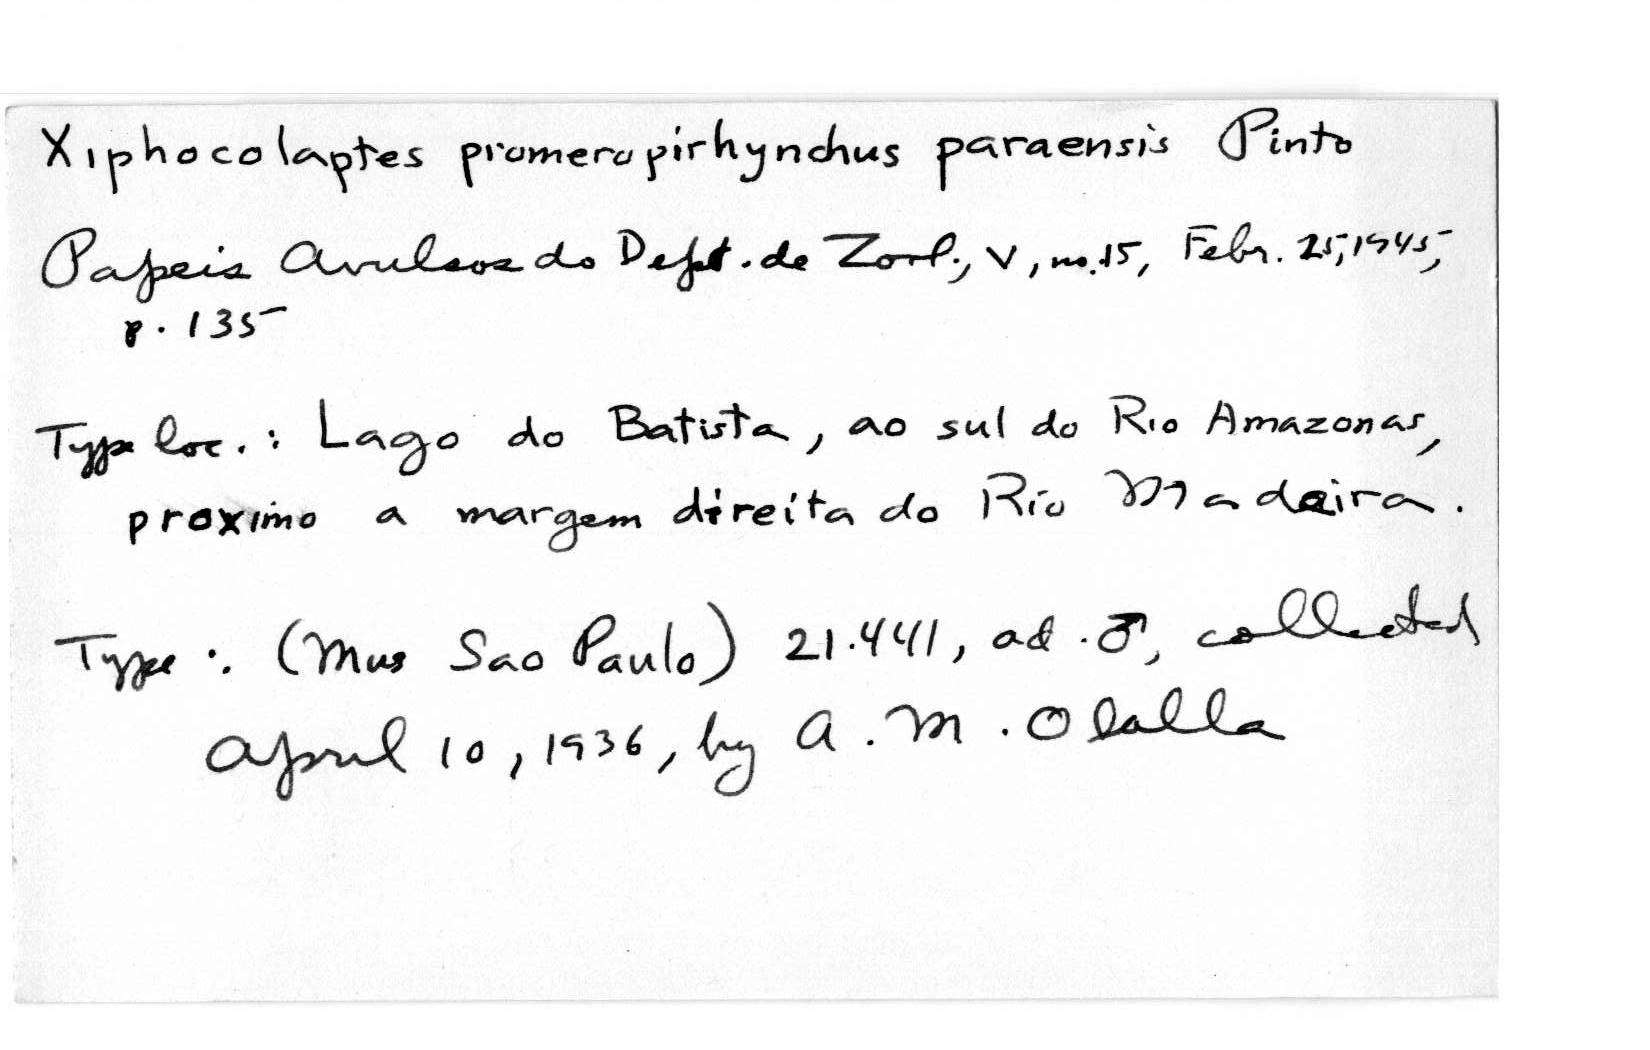 Xiphocolaptes promeropirhynchus paraensis Pinto
Papeis Avulsos do Dept. de Zool., V, no. 15, Febr. 25, 1945,
p. 135
Type loc.: Lago do Batista, ao sul do Rio Amazonas,
proximo a margem direita do Rio Madeira.
Type: (Mus Sao Paulo) 21.441, ad. ♂, collected
April 10, 1936, by A. M. Olalla